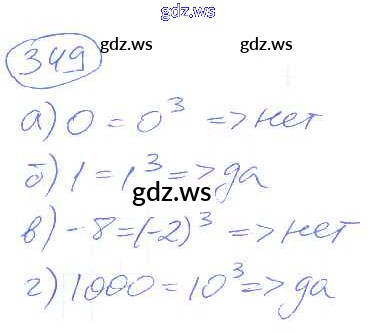 gdz.ws
gdz.ws gdz.ws
349
а) 0 = 0³ => нет
б) 1 = 1³ => да
gdz.ws
в) -8 = (-2)³ => нет
г) 1000 = 10³ => да
gdz.ws